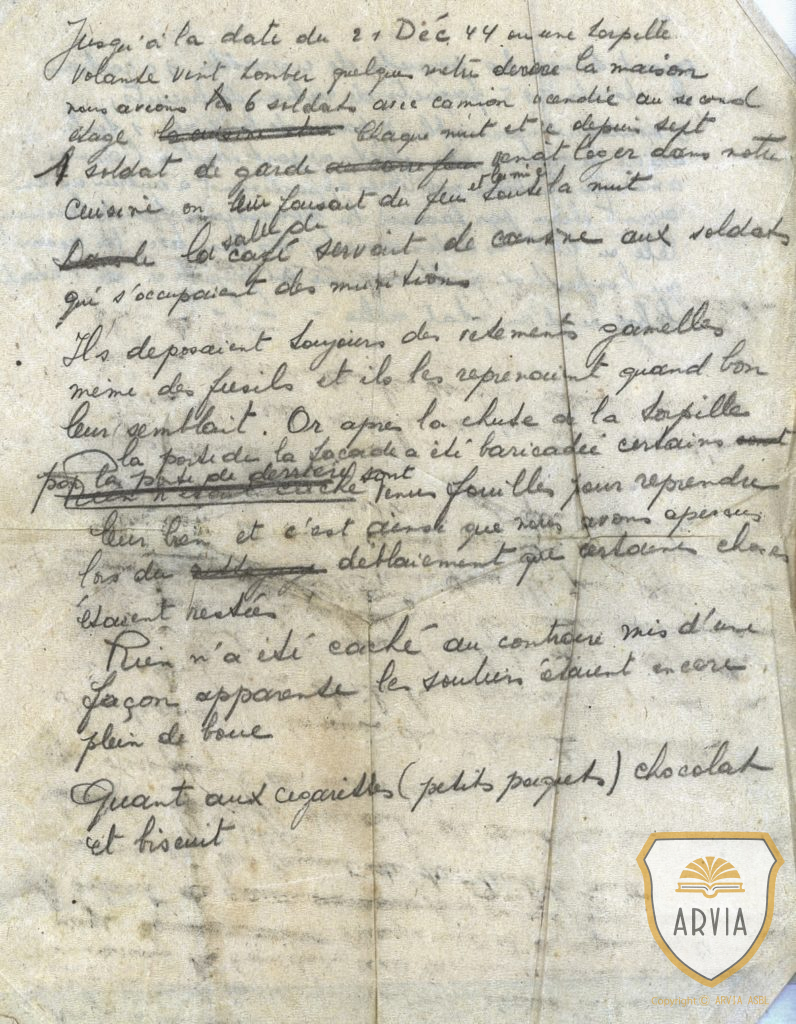 Jusqu'à la date du 21 Déc 44 ou une torpille
volante vint tomber quelques metre derière la maison
nous avions les 6 soldats avec camion au second
etage la cuisine Chaque nuit et depuis sept
1 soldat de garde venait loger dans notre
et la nuit
cuisine on leur faisait du feu la nuit
salle de
la café servait de cantine aux soldats
qui s'occupaient des munitions
Ils deposaient toujours des vetements gamelles
même des fusils et ils les reprenaient quand bon
leur semblait. Or apres la chute de la torpille
la porte de la facade a été baricadée certains sont
par la porte de derrière sont
Rien n'etait caché venus fouilles pour reprendre
leur bien et c'est ainsi que nous avons apercus
lors du déblaiement que certaines choses
étaient restées
Rien n'a été caché au contraire mis d'une
façon apparente les souliers étaient encore
plein de boue
Quant aux cigarettes (petits paquets) chocolat
et biscuit
ARVIA
Copyright © ARVIA ASBL